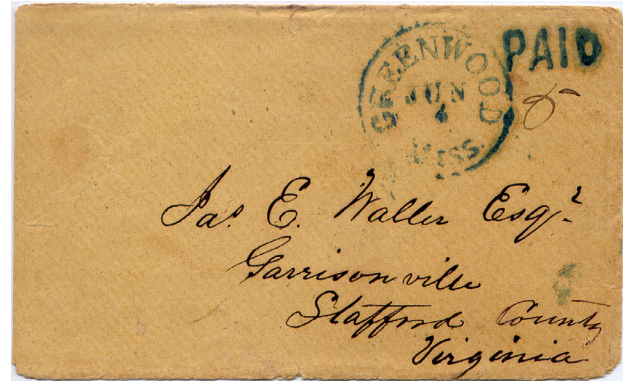 GREENWOOD
MISS.
JUN
4
PAID
5
Jas. E. Waller Esqr.
Garrisonville
Stafford County
Virginia